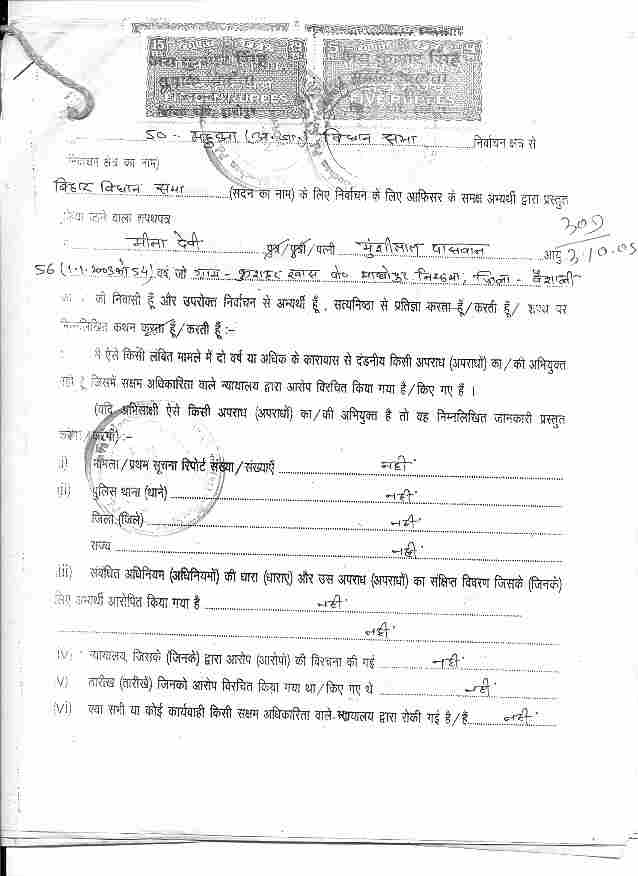 15
5
FIVE RUPEES
50 - महुआ (अ.जा.) विधान सभा निर्वाचन क्षेत्र से
निर्वाचन क्षेत्र का नाम)
बिहार विधान सभा (सदन का नाम) के लिए निर्वाचन के लिए आफिसर के समक्ष अभ्यर्थी द्वारा प्रस्तुत
किया जाने वाला शपथपत्र
मीना देवी पुत्र/पुत्री/पत्नी मुंशीलाल पासवान आयु
56 (1.1.2005 को 54) वर्ष, जो ग्राम - कुशहर खास पो० जिला - वैशाली
का निवासी हूँ और उपरोक्त निर्वाचन से अभ्यर्थी हूँ , सत्यनिष्ठा से प्रतिज्ञा करता हूँ/करती हूँ/ शपथ पर
निम्नलिखित कथन करता हूँ/करती हूँ :-
मैं ऐसे किसी लंबित मामले में दो वर्ष या अधिक के कारावास से दंडनीय किसी अपराध (अपराधों) का/की अभियुक्त
नहीं हूँ जिसमें सक्षम अधिकारिता वाले न्यायालय द्वारा आरोप विरचित किया गया है/किए गए हैं ।
(यदि अभिसाक्षी ऐसे किसी अपराध (अपराधों) का/की अभियुक्त है तो वह निम्नलिखित जानकारी प्रस्तुत
करेगा/करेगी) :-
i) मामला/प्रथम सूचना रिपोर्ट संख्या/संख्याएँ नहीं
(ii) पुलिस थाना (थाने) नहीं
जिला (जिले) नहीं
राज्य नहीं
iii) संबंधित अधिनियम (अधिनियमों) की धारा (धाराए) और उस अपराध (अपराधों) का संक्षिप्त विवरण जिसके (जिनके)
लिए अभ्यर्थी आरोपित किया गया है नहीं
नहीं
IV) न्यायालय, जिसके (जिनके) द्वारा आरोप (आरोपों) की विरचना की गई नहीं
V) तारीख (तारीखें) जिनको आरोप विरचित किया गया था/किए गए थे नहीं
(vi) क्या सभी या कोई कार्यवाही किसी सक्षम अधिकारिता वाले न्यायालय द्वारा रोकी गई है/हैं नहीं